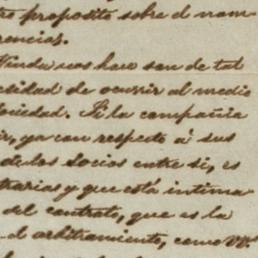 proposito sobre el nom
rencias.
hace son de tal
esidad de ocurrir al medio
ociedad. Si la compañia
ir, ya con respecto á sus
de los socios entre si, es
trarias y que está intima
del contrato, que es la
el arbitramiento, como VV.